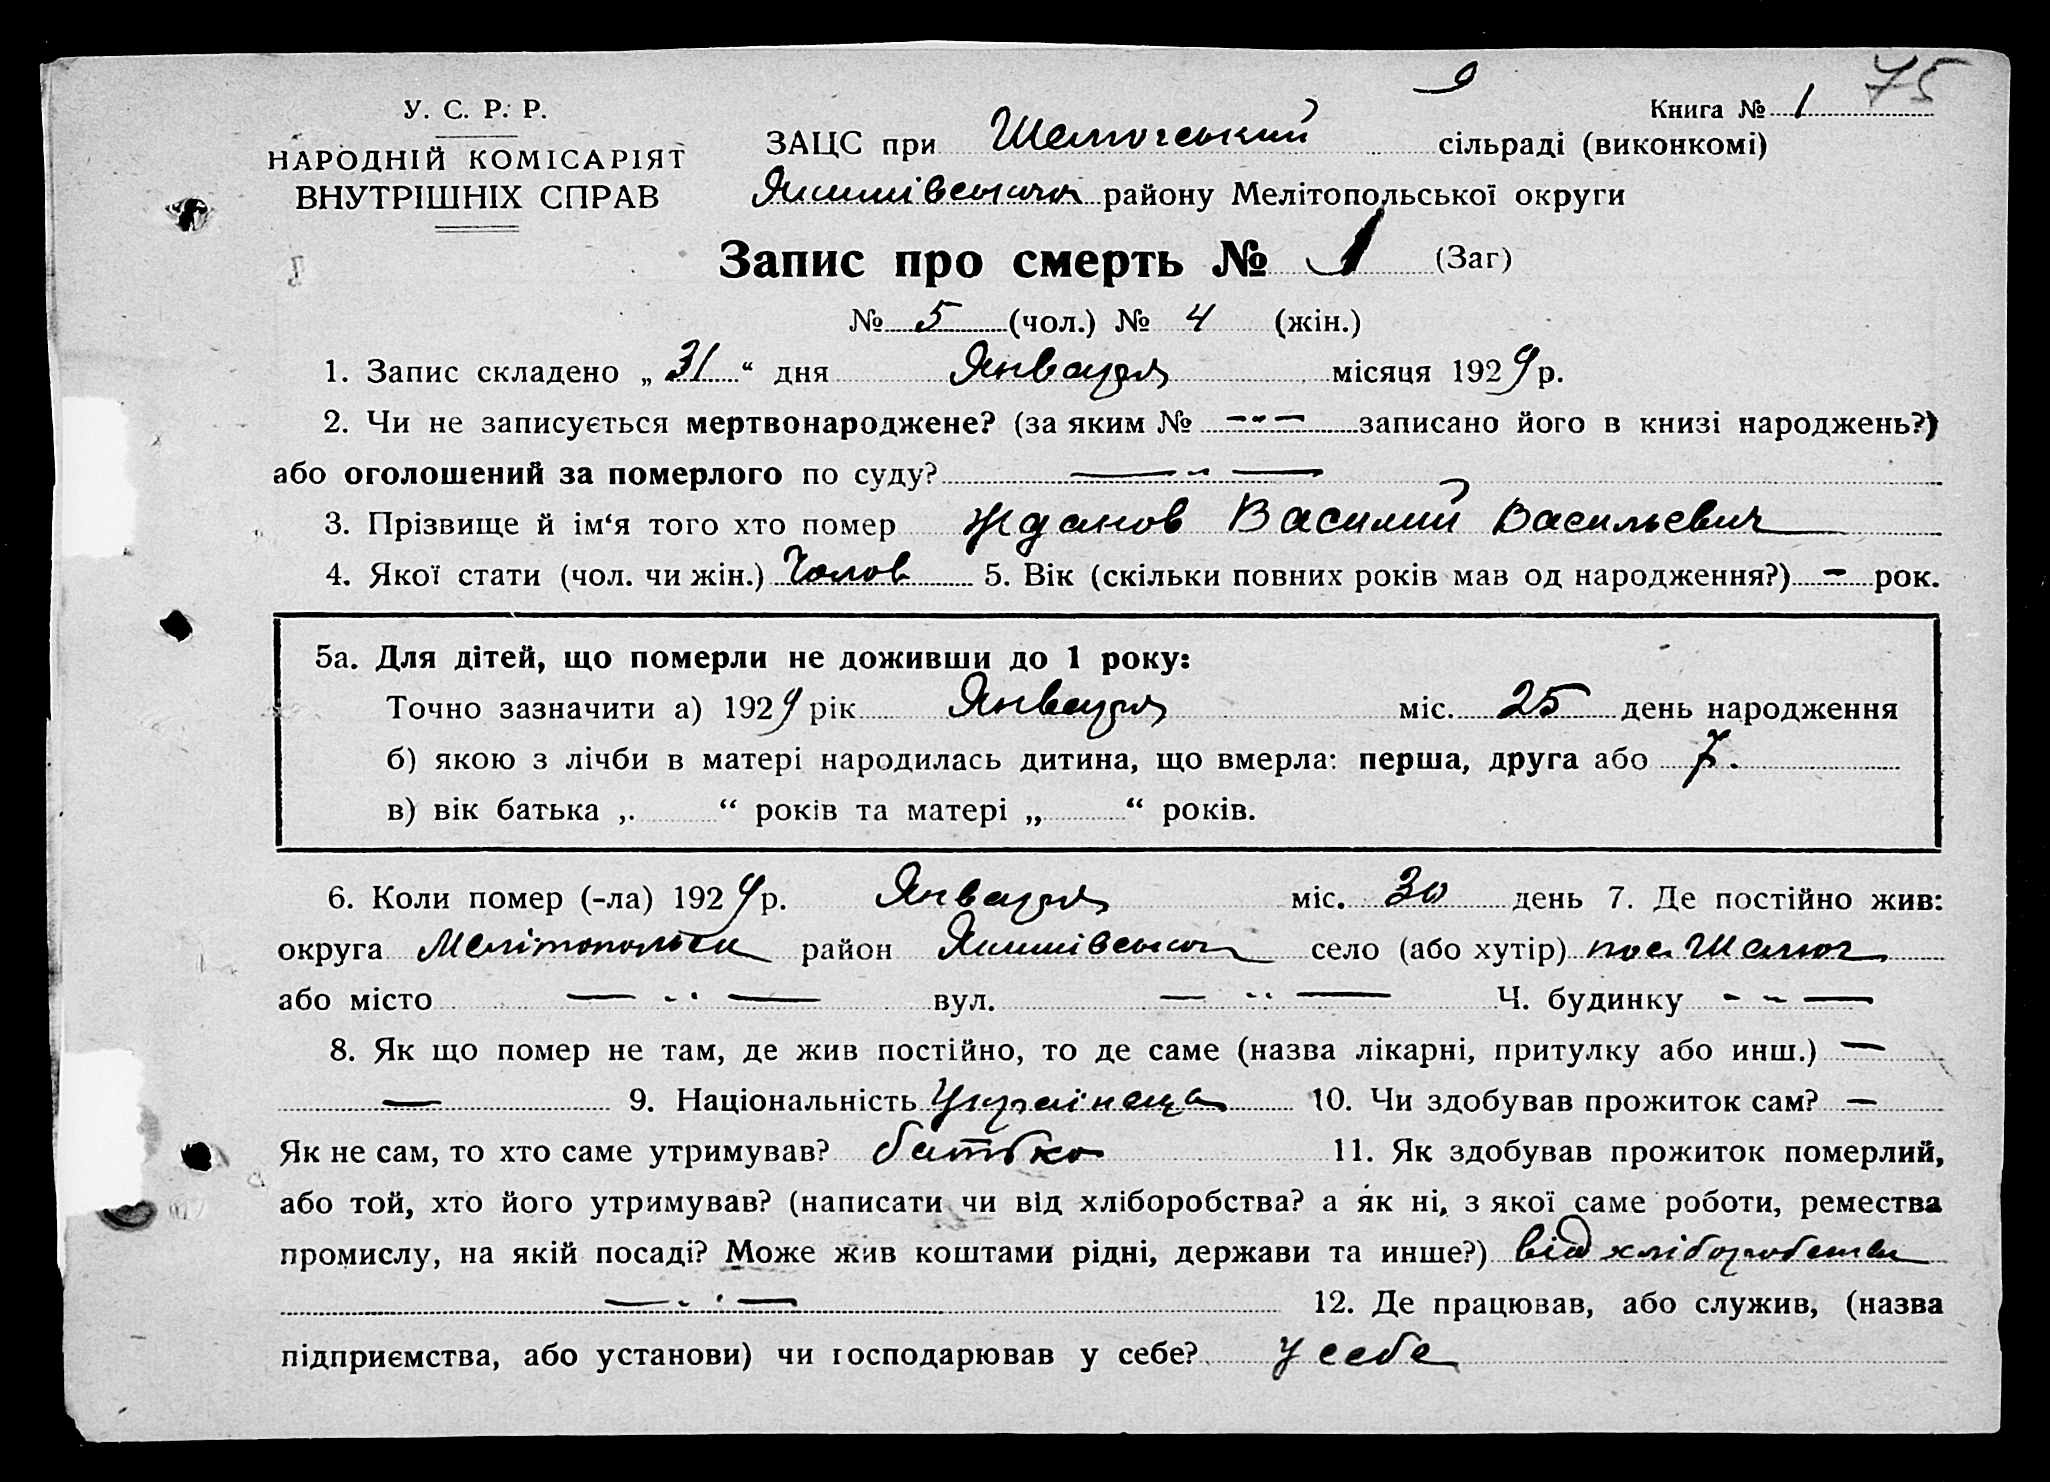 75
У. С. Р. Р. Книга № 1
НАРОДНІЙ КОМІСАРІЯТ ЗАЦС при Шелюгський сільраді (виконкомі)
ВНУТРІШНІХ СПРАВ Якимівський району Мелітопольської округи
Запис про смерть № 1 (Заг)
№ 5 (чол.) № 4 (жін.)
1. Запис складено „ 31 “ дня Января місяця 1929 р.
2. Чи не записується мертвонароджене? (за яким № — „ — записано його в книзі народжень?)
або оголошений за померлого по суду? — „ —
3. Прізвище й ім‘я того хто помер Жданов Василий Васильевич
4. Якої стати (чол. чи жін.) Чолов 5. Вік (скільки повних років мав од народження?) — рок.
5а. Для дітей, що померли не доживши до 1 року:
Точно зазначити а) 1929 рік Января міс. 25 день народження
б) якою з лічби в матері народилась дитина, що вмерла: перша, друга або 7.
в) вік батька „ “ років та матері „ “ років.
6. Коли помер (-ла) 1929 р. Января міс. 30 день 7. Де постійно жив:
округа Мелітопольськ район Якимівськог село (або хутір) пос. Шелюг
або місто — „ — вул. — „ — Ч. будинку - „ —
8. Як що помер не там, де жив постійно, то де саме (назва лікарні, притулку або инш.) —
— 9. Національність Українець 10. Чи здобував прожиток сам? —
Як не сам, то хто саме утримував? батько 11. Як здобував прожиток померлий,
або той, хто його утримував? (написати чи від хліборобства? а як ні, з якої саме роботи, ремества
промислу, на якій посаді? Може жив коштами рідні, держави та инше?) від хліборобства
— „ — 12. Де працював, або служив, (назва
підприємства, або установи) чи господарював у себе? у себе